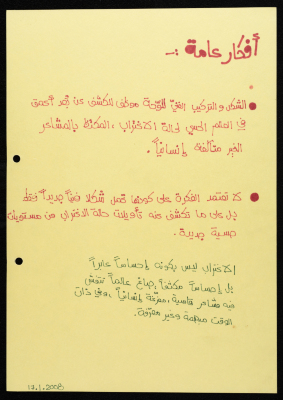 أفكار عامة :-
الشكل والتركيب الفني للوحة موظف للكشف عن بُعد أعمق
في العالم الحسي لحالة الاغتراب، المكتظ بالمشاعر
الغير متآلفة إنسانياً.
لا تعتمد الفكرة على كونها تحمل شكلاً فنياً جديداً فقط
بل على ما تكشف عنه تأويلات حالة الاغتراب من مستويات
حسية جديدة.
الاغتراب ليس بكونه إحساساً عابراً
بل إحساساً مكثفاً، صاغ عالماً تنتعش
فيه مشاعر قاسية، ممزقة إنسانياً، وفي ذات
الوقت مبهمة وغير معرّفة.
17.1.2008